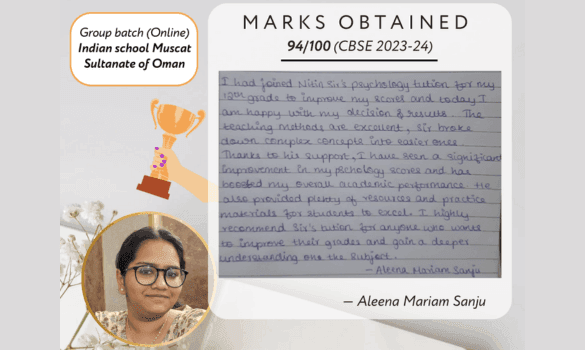 Group batch (Online)
Indian school Muscat
Sultanate of Oman
MARKS OBTAINED
94/100 (CBSE 2023-24)
I had joined Nitin Sir's psychology tution for my
12th grade to improve my scores and today I
am happy with my decision & results. The
teaching methods are excellent, Sir broke
down complex concepts into easier ones.
Thanks to his support, I have seen a significant
improvement in my pschology scores and has
boosted my overall academic performance. He
also provided plenty of resources and practice
materials for students to excel. I highly
recommend Sir's tution for anyone who wants
to improve their grades and gain a deeper
understanding one the subject.
- Aleena Mariam Sanju
— Aleena Mariam Sanju